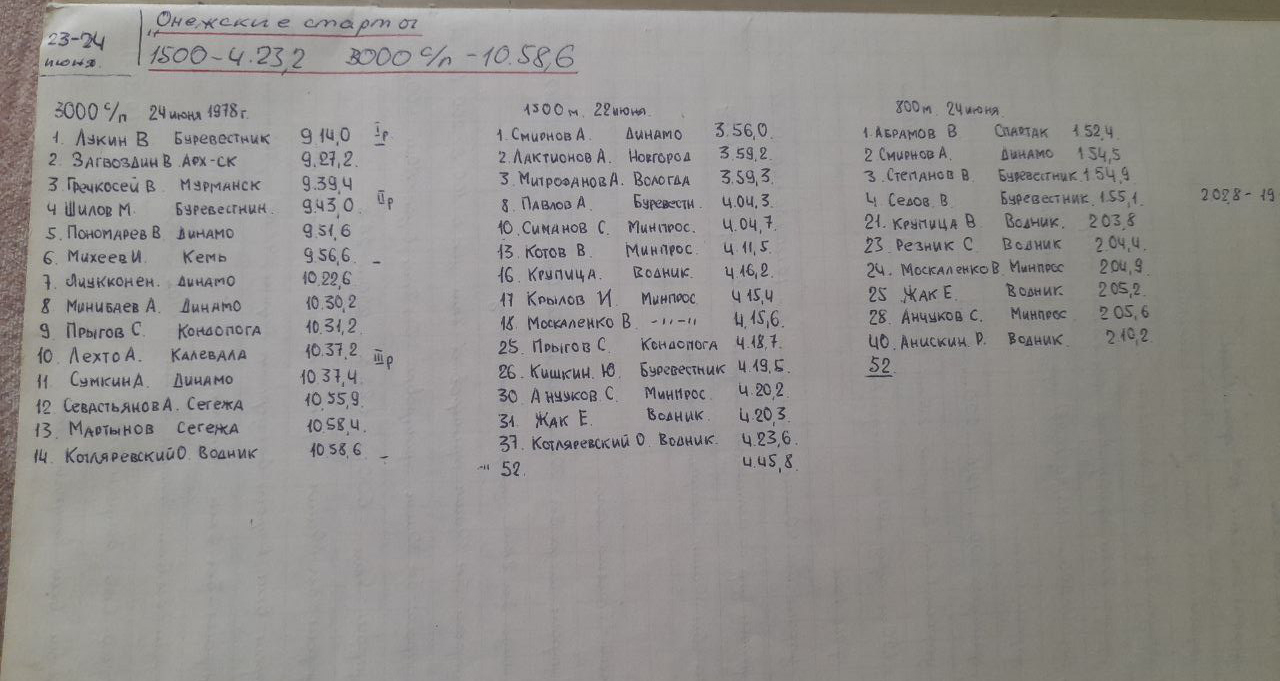 23-24
июня.
„Онежские старты
1500-4.23,2 3000 с/п -10.58,6
3000 с/п 24 июня 1978 г.
1. Лукин В Буревестник 9.14,0 Iр
2. Загвоздин В. Арх-ск 9.27,2.
3 Гречкосей В. Мурманск 9.39,4
4 Шилов М. Буревестнин. 9.43,0 IIр
5. Пономарев В Динамо 9.51,6
6. Михеев И. Кемь 9.56,6 -
7. Динамо 10.22,6
8 Минибаев А. Динамо 10.30,2
9 Прыгов С. Кондопога 10.31,2
10. Лехто А. Калевала 10.37,2 IIIр
11. Сумкин А. Динамо 10 37,4
12 Севастьянов А. Сегежа 10 55,9
13. Мартынов Сегежа 10 58,4
14. Котляревский О. Водник 10 58,6 -
1500 м. 22 июня.
1. Смирнов А. Динамо 3.56,0.
2. Лактионов А. Новгород 3.59,2
3. Митрофанов А. Вологда 3.59,3
8. Павлов А. Буревестн. 4.04,3
10. Симанов С. Минпрос. 4.04,7
13. Котов В. Минпрос. 4.11,5
16. Крупица. Водник. 4.16,2
17 Крылов И. Минпрос 4 15,4
18. Москаленко В. -„-„ 4.15,6
25. Прыгов С. Кондопога 4.18,7
26. Кишкин. Ю. Буревестник 4.19,5
30 Анчуков С. Минпрос. 4.20,2
31. Жак Е. Водник. 4.20,3
37. Котляревский О Водник. 4.23,6
-„ 52. 4.45,8
800 м. 24 июня.
1. Абрамов В Спартак 1 52,4.
2 Смирнов А. Динамо 1 54,5
3. Степанов В Буревестник 1.54,9
4. Седов. В Буревестник 1.55,1 2.02,8 - 19
21. Крупица В Водник. 2 03,8
23. Резник С. Водник 2 04,4
24. Москаленко В. Минпрос 2 04,9
25 Жак Е. Водник 2 05,2
28. Анчуков С. Минпрос. 2 05,6
40. Анискин. Р. Водник. 2 10,2
52.